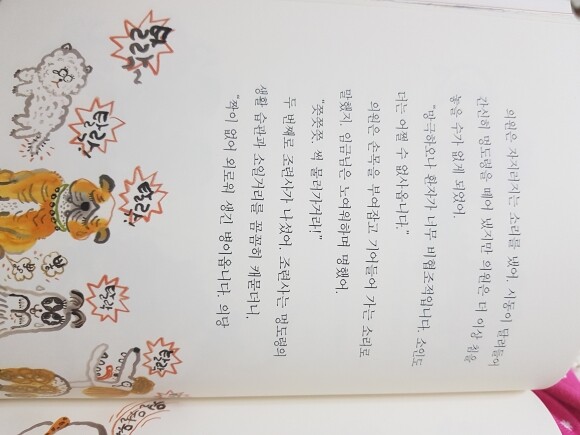 의원은 자지러지는 소리를 냈어. 시동이 달려들어
간신히 멍도령을 떼어 냈지만 의원은 더 이상 침을
놓을 수가 없게 되었어.
"망극하오나 환자가 너무 비협조적입니다. 소인도
더는 어쩔 수 없사옵니다."
의원은 손목을 부여잡고 기어들어 가는 소리로
말했지. 임금님은 노여워하며 명했어.
"쯧쯧쯧 썩 물러가거라!"
두 번째로 조련사가 나섰어. 조련사는 멍도령의
생활 습관과 소일거리를 꼼꼼히 캐묻더니,
"짝이 없어 외로워 생긴 병이옵니다. 의당
탈락
탈락
탈락
탈락